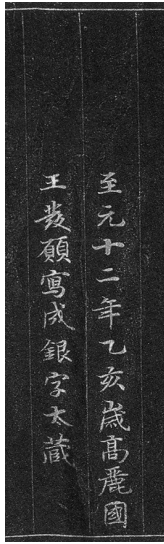 至元十二年乙亥歳高麗國
王發願寫成銀字大藏